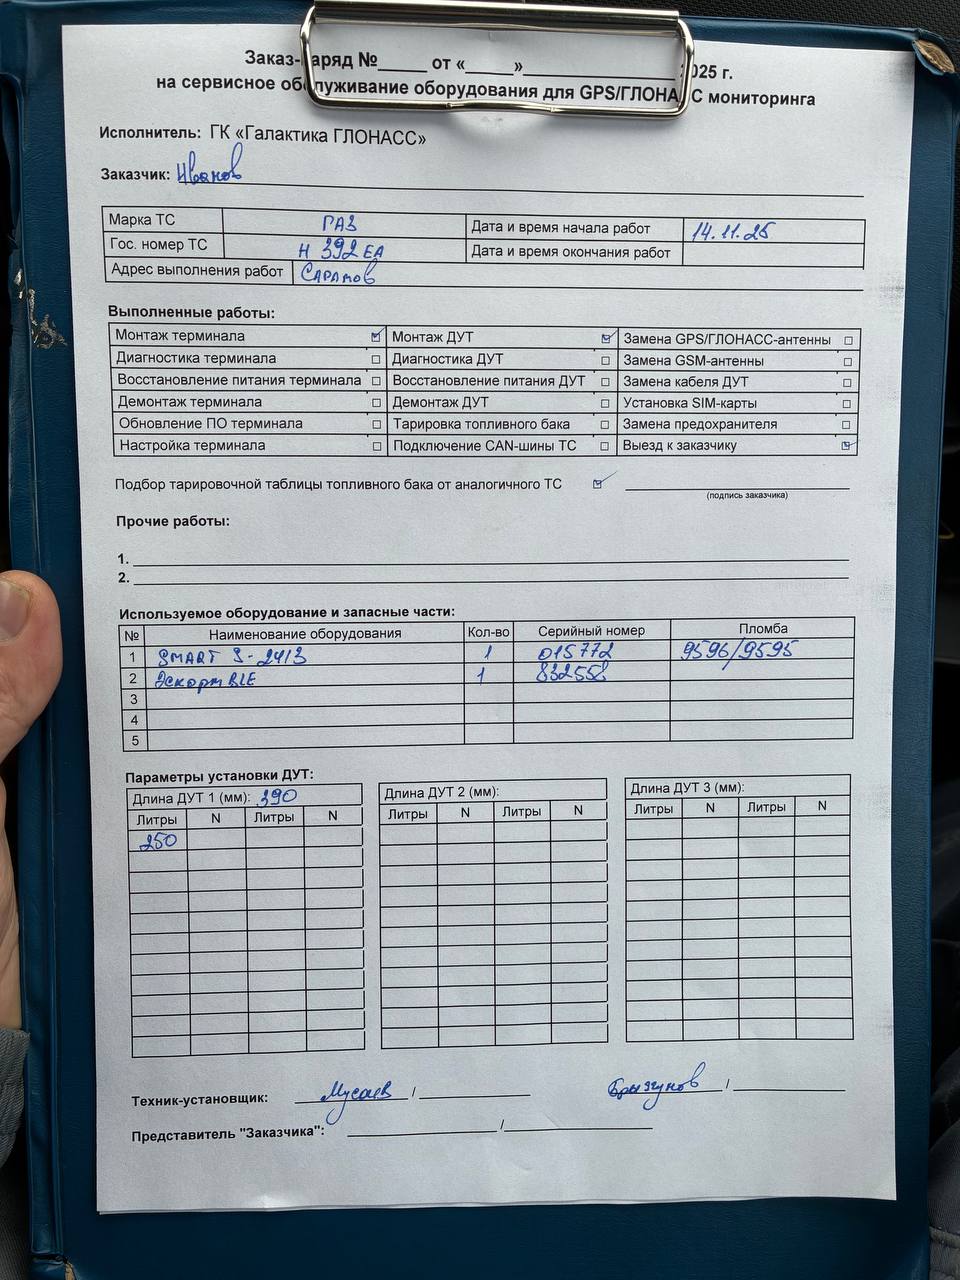 Заказ-наряд №_____ от «_____»_______________ 2025 г.
на сервисное обслуживание оборудования для GPS/ГЛОНАСС мониторинга
Исполнитель: ГК «Галактика ГЛОНАСС»
Заказчик: Иванов
Марка ТС ГАЗ Дата и время начала работ 14.11.25
Гос. номер ТС Н 392 ЕА Дата и время окончания работ
Адрес выполнения работ Саратов
Выполненные работы:
Монтаж терминала ☑ Монтаж ДУТ ☑ Замена GPS/ГЛОНАСС-антенны ☐
Диагностика терминала ☐ Диагностика ДУТ ☐ Замена GSM-антенны ☐
Восстановление питания терминала ☐ Восстановление питания ДУТ ☐ Замена кабеля ДУТ ☐
Демонтаж терминала ☐ Демонтаж ДУТ ☐ Установка SIM-карты ☐
Обновление ПО терминала ☐ Тарировка топливного бака ☐ Замена предохранителя ☐
Настройка терминала ☐ Подключение CAN-шины ТС ☐ Выезд к заказчику ☑
Подбор тарировочной таблицы топливного бака от аналогичного ТС ☑ _______________
(подпись заказчика)
Прочие работы:
1. _______________
2. _______________
Используемое оборудование и запасные части:
№ Наименование оборудования Кол-во Серийный номер Пломба
1 SMART S-2413 1 015772 9596/9595
2 Эскорт BLE 1 832558
3
4
5
Параметры установки ДУТ:
Длина ДУТ 1 (мм): 390 Длина ДУТ 2 (мм): Длина ДУТ 3 (мм):
Литры N Литры N Литры N Литры N Литры N Литры N
250
Техник-установщик: Мусаев / _______________ Брызгунов / _______________
Представитель "Заказчика": _______________ / _______________